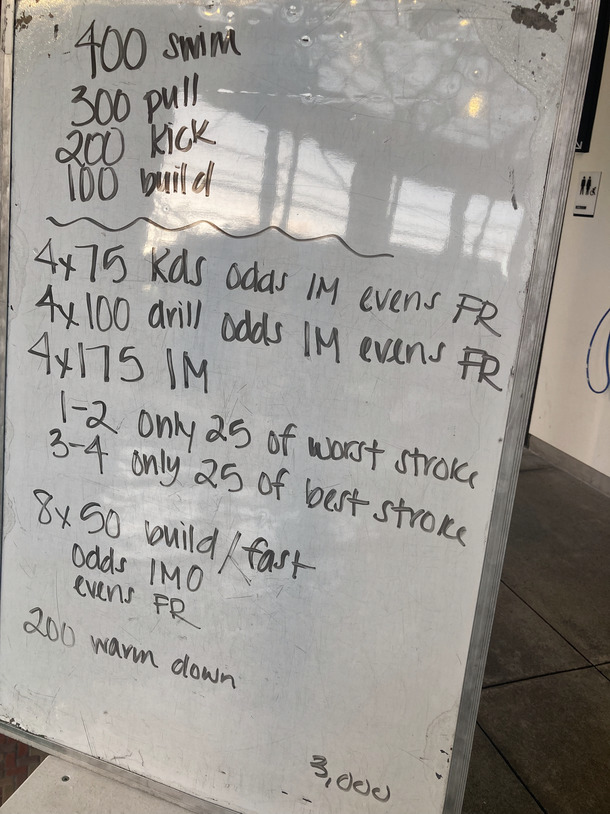 400 swim
300 pull
200 kick
100 build
4x75 Kds odds IM evens FR
4x100 drill odds IM evens FR
4x175 IM
1-2 only 25 of worst stroke
3-4 only 25 of best stroke
8x50 build/fast
odds IMO
evens FR
200 warm down
3,000